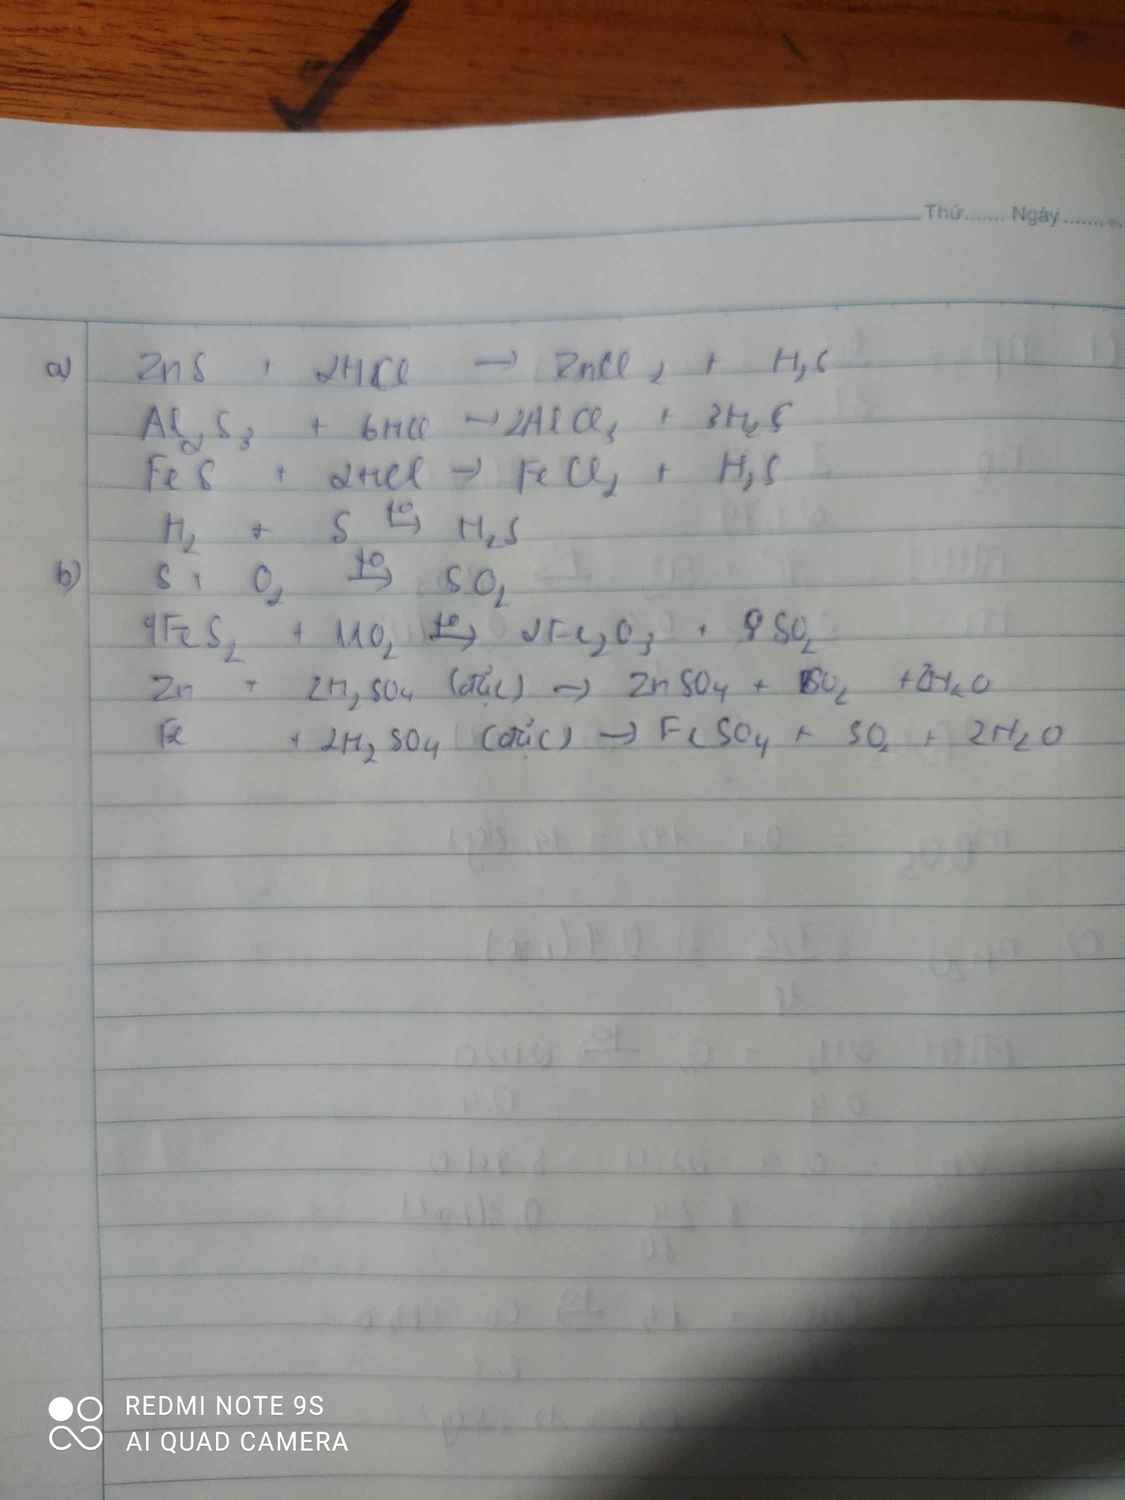 Thứ....... Ngày.......
a) ZnS + 2HCl → ZnCl2 + H2S
Al2S3 + 6HCl → 2AlCl3 + 3H2S
FeS + 2HCl → FeCl2 + H2S
H2 + S t°→ H2S
b) S + O2 t°→ SO2
4FeS2 + 11O2 t°→ 2Fe2O3 + 8SO2
Zn + 2H2SO4 (đặc) → ZnSO4 + SO2 + 2H2O
Fe + 2H2SO4 (đặc) → FeSO4 + SO2 + 2H2O
REDMI NOTE 9S
AI QUAD CAMERA